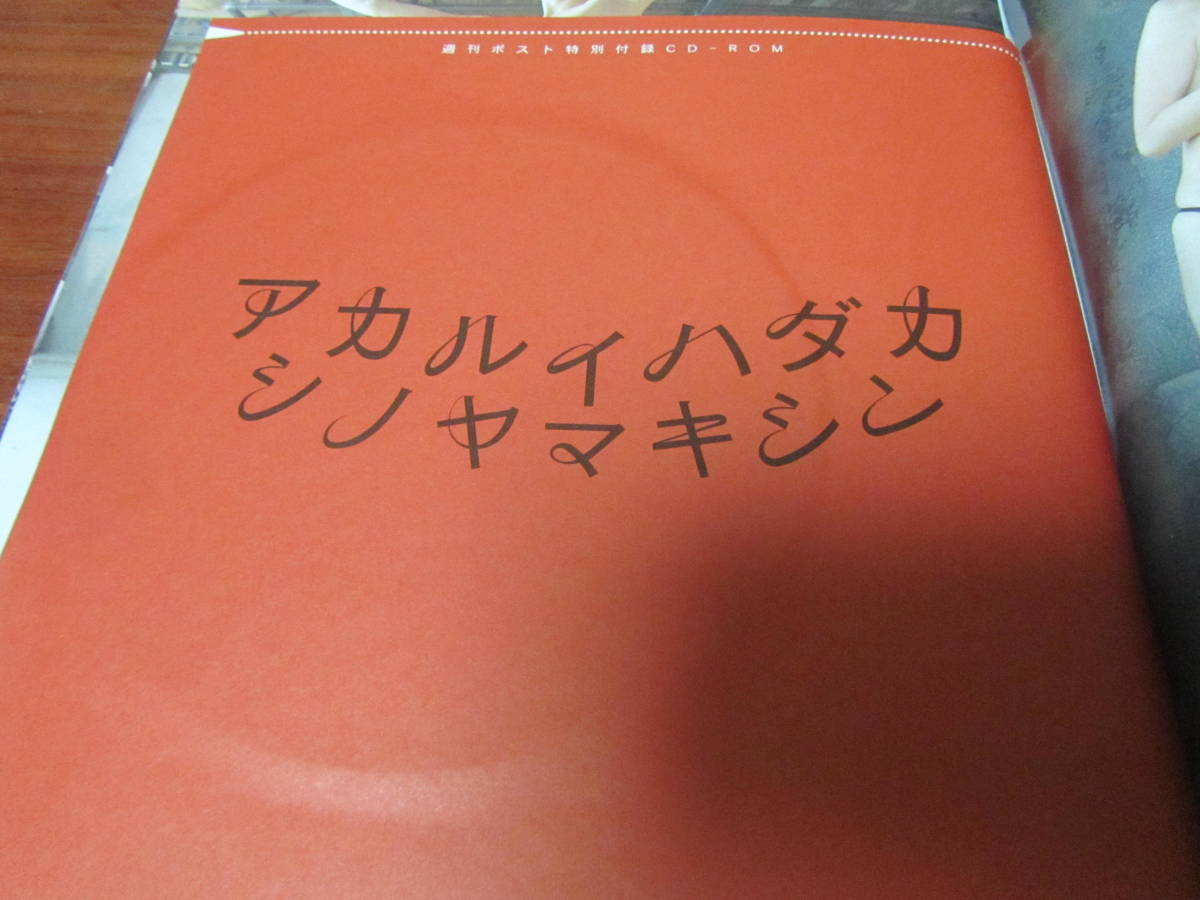 週刊ポスト特別付録CD-ROM
アカルイハダカ
シノヤマキシン